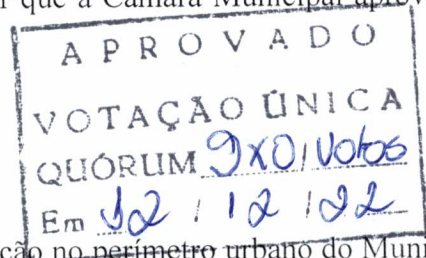 que a Câmara Municipal aprov
APROVADO
VOTAÇÃO ÚNICA
QUÓRUM 9x0, votos
Em 12 / 12 / 22
ção no perímetro urbano do Muni